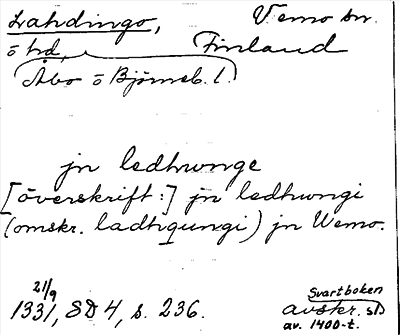 Lahdingo, Vemo sn.
ö hd, Finland
Åbo ö Björneb. l.
jn ledhunge
[överskrift:] jn ledhungi
(omskr. ladhgungi) jn Wemo.
21/9 Svartboken
1331, SD 4, s. 236. avskr. sl.
av. 1400-t.